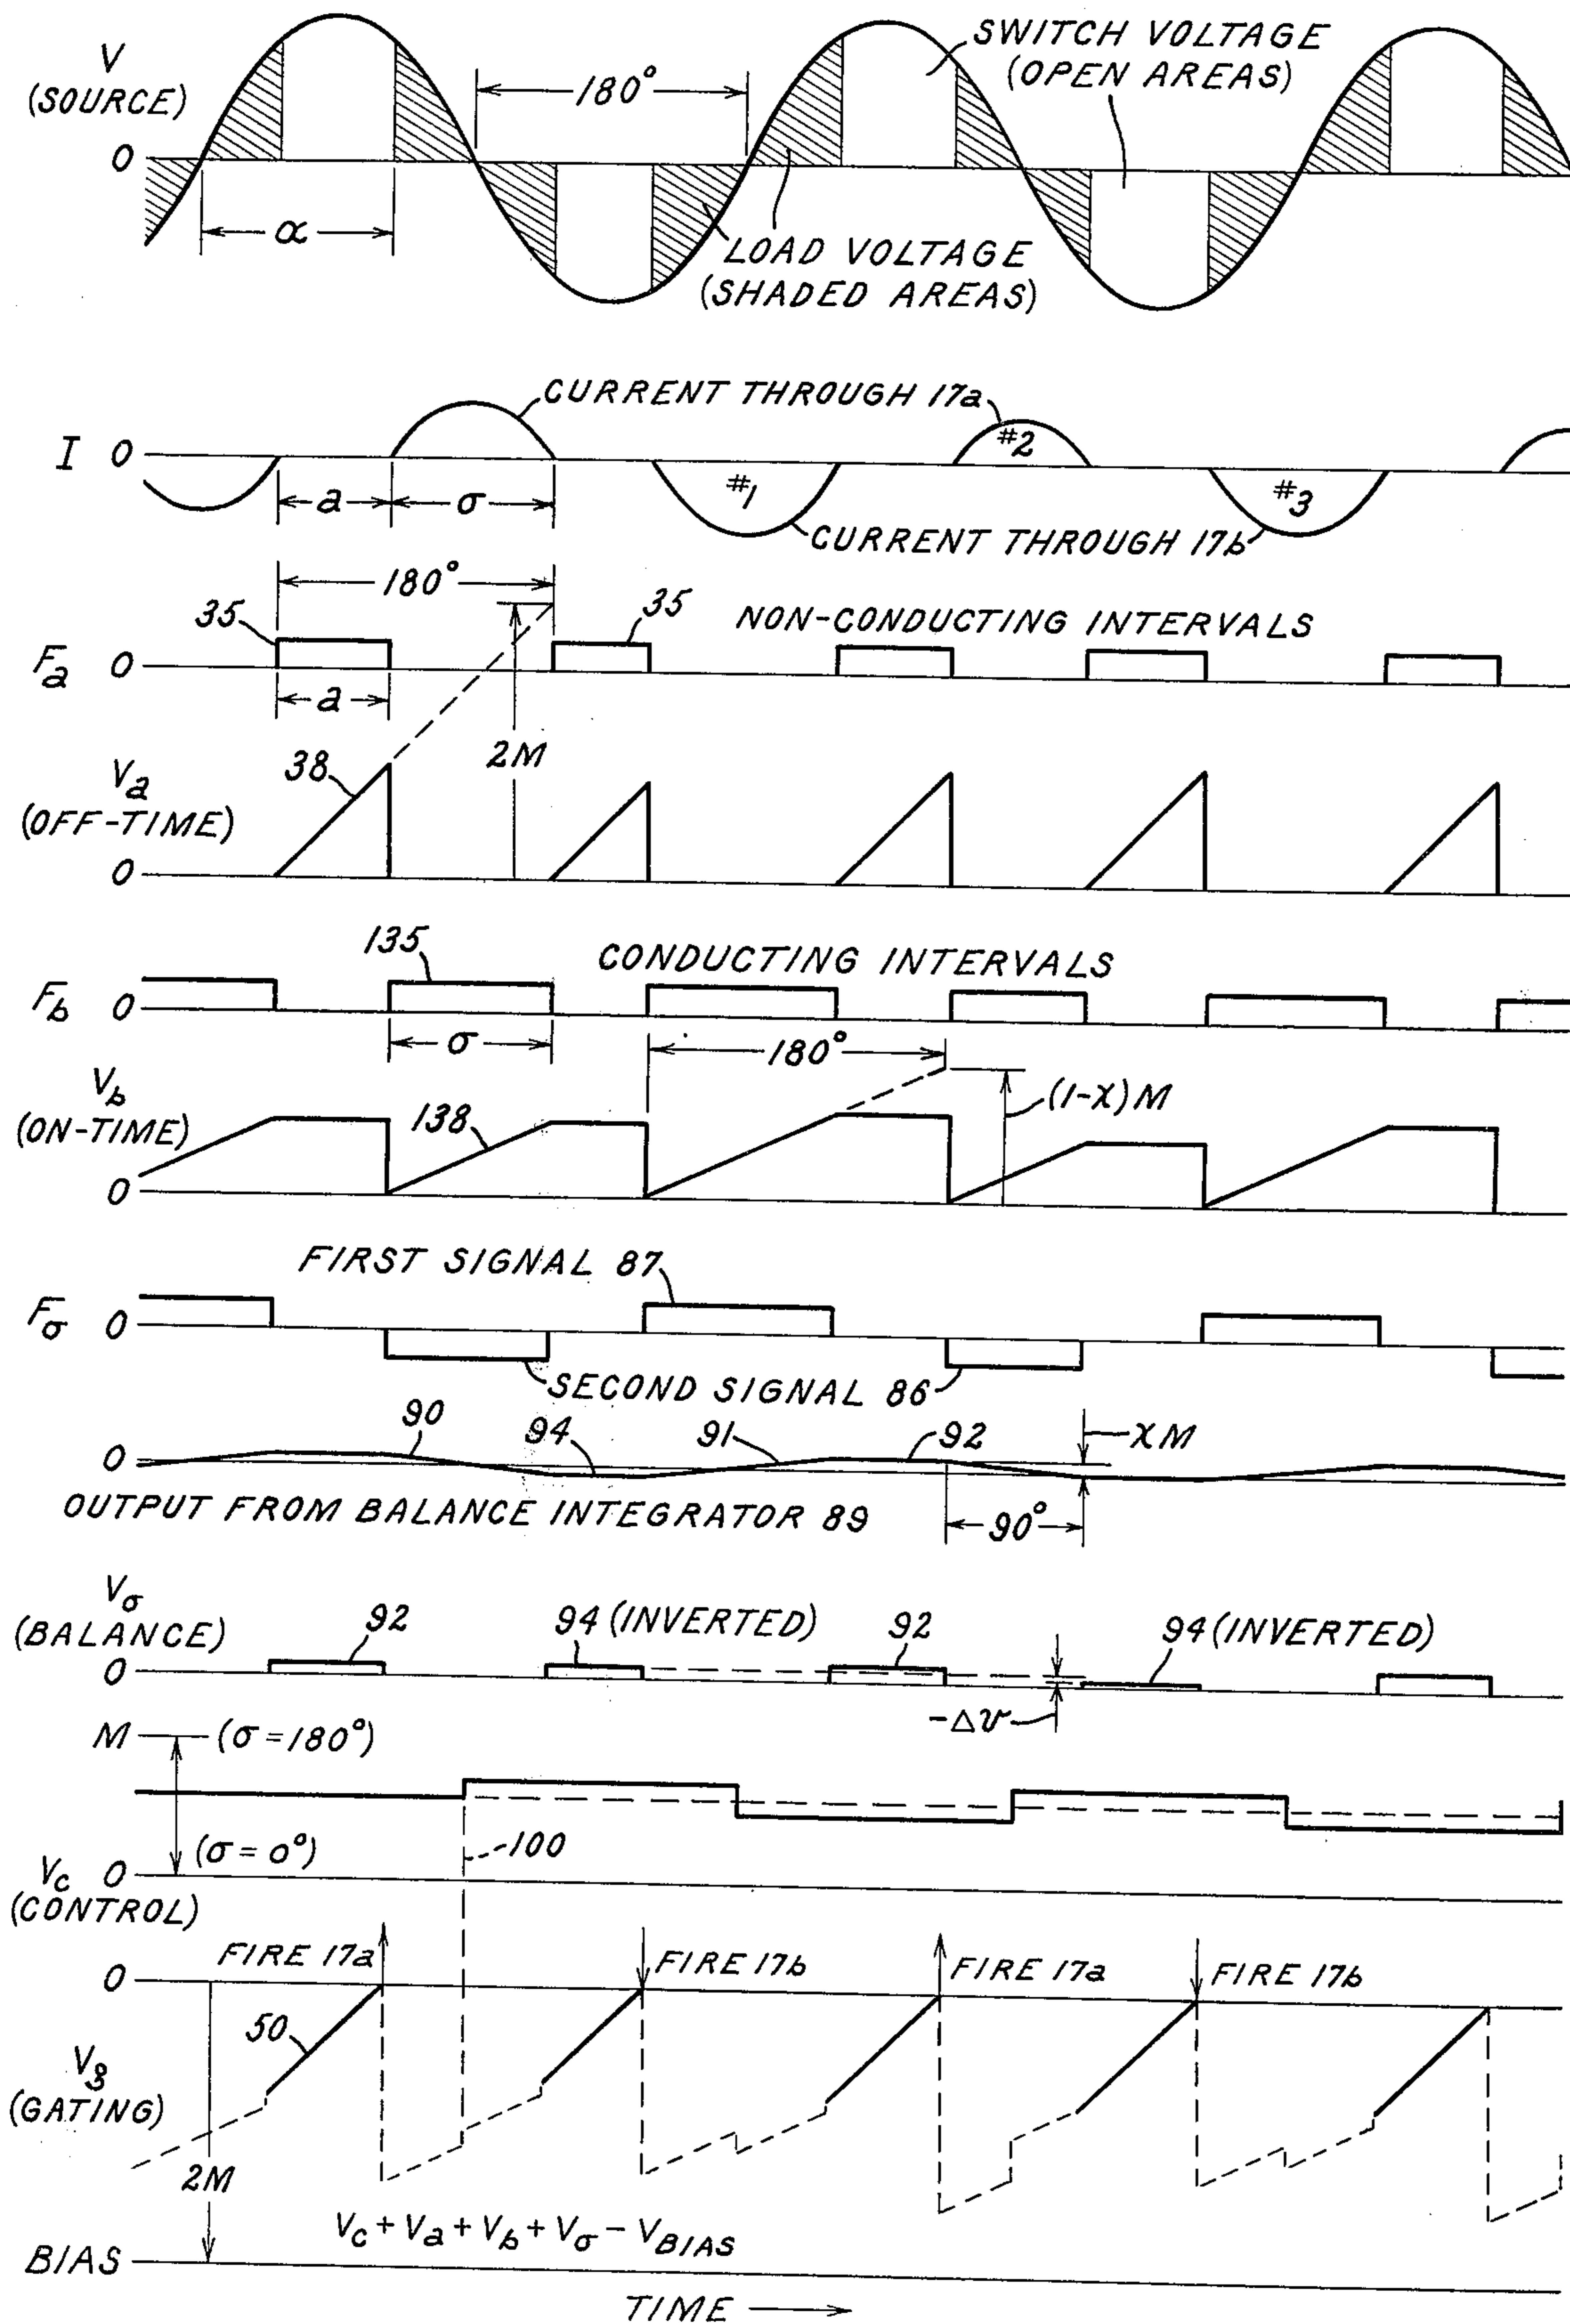 V
(SOURCE)
0
180°
SWITCH VOLTAGE
(OPEN AREAS)
α
LOAD VOLTAGE
(SHADED AREAS)
CURRENT THROUGH 17a
I 0
#2
#1
#3
a
σ
CURRENT THROUGH 17b
180°
35
35
NON-CONDUCTING INTERVALS
Fa 0
a
2M
38
Va
(OFF-TIME)
0
135
CONDUCTING INTERVALS
Fb 0
σ
180°
Vb
(ON-TIME)
138
(1-X)M
0
FIRST SIGNAL 87
Fσ 0
SECOND SIGNAL 86
90
94
91
92
XM
0
OUTPUT FROM BALANCE INTEGRATOR 89
90°
Vσ
(BALANCE)
92
94 (INVERTED)
92
94 (INVERTED)
0
-Δv
M (σ=180°)
(σ=0°)
100
Vc 0
(CONTROL)
FIRE 17a
FIRE 17b
FIRE 17a
FIRE 17b
0
50
Vg
(GATING)
2M
Vc + Va + Vb + Vσ - VBIAS
BIAS
TIME